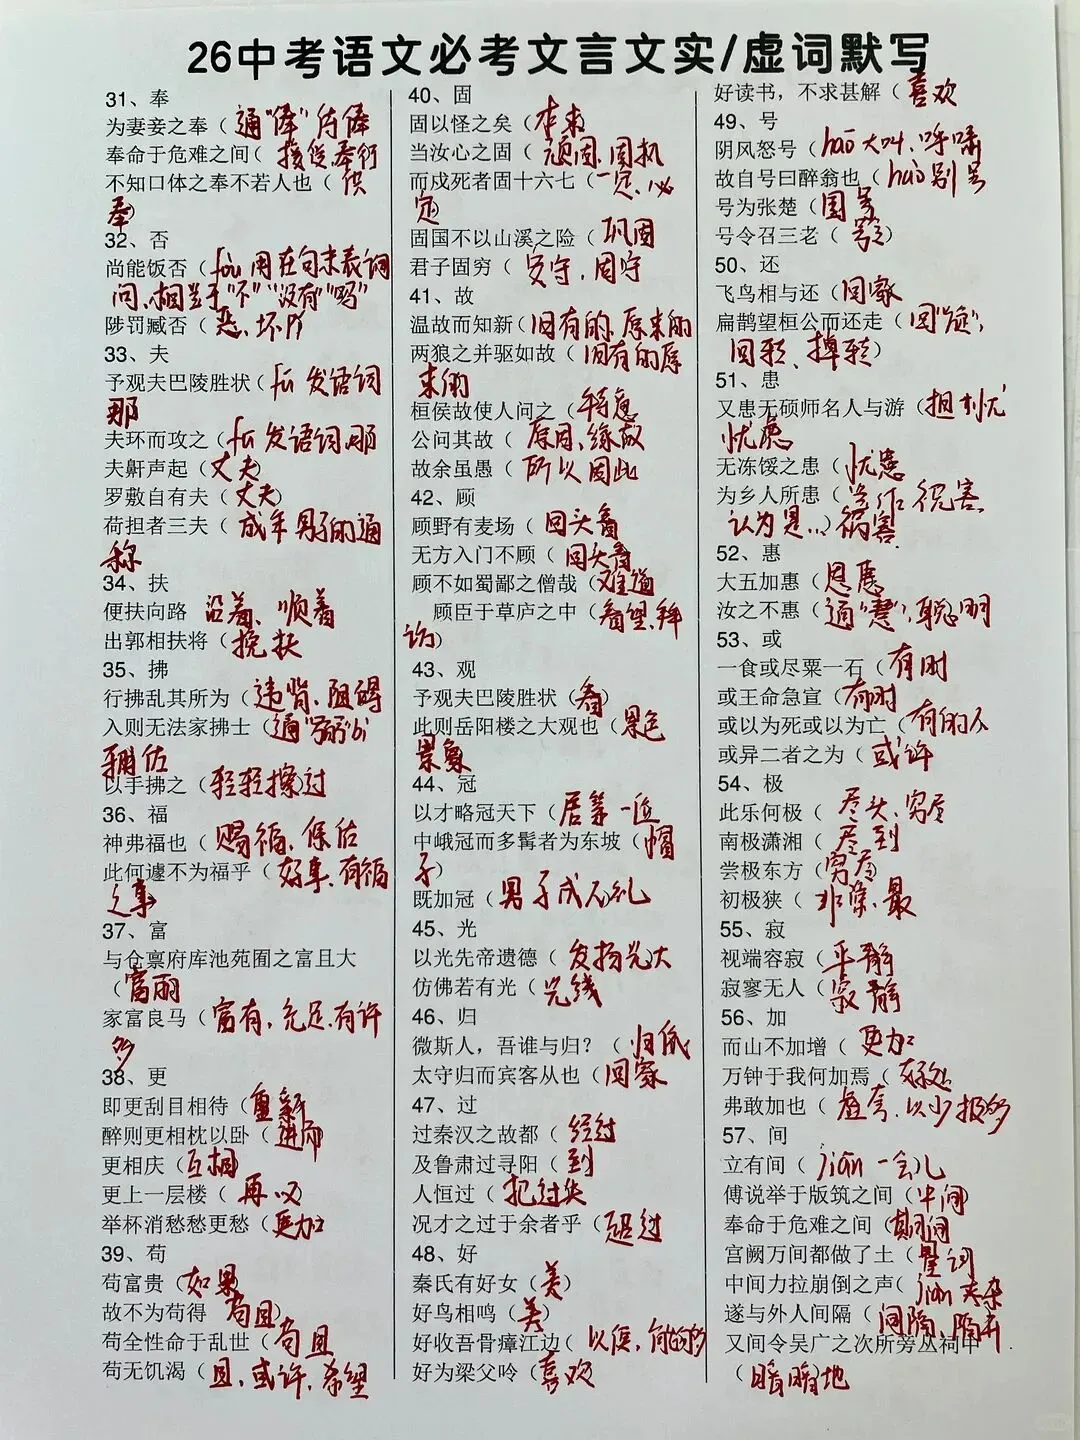 26中考语文必考文言文实/虚词默写
31、奉
为妻妾之奉（通"俸"俸
奉命于危难之间（接受、奉行
不知口体之奉不若人也（供
奉）
32、否
尚能饭否（fǒu 用在句末表询
问、相当于"不""没有""吗"
陟罚臧否（恶、坏 pǐ
33、夫
予观夫巴陵胜状（fú 发语词
那
夫环而攻之（fú 发语词,那
夫鼾声起（丈夫）
罗敷自有夫（丈夫）
荷担者三夫（成年男子的通
称
34、扶
便扶向路 沿着、顺着
出郭相扶将（搀扶
35、拂
行拂乱其所为（违背、阻碍
入则无法家拂士（通"弼"bì
辅佐
以手拂之（轻轻擦过
36、福
神弗福也（赐福、保佑
此何遽不为福乎（好事、有福
之事
37、富
与仓禀府库池苑囿之富且大
（富丽
家富良马（富有，充足,有许
多
38、更
即更刮目相待（重新
醉则更相枕以卧（
更相庆（互相）
更上一层楼（再 又
举杯消愁愁更愁（更加
39、苟
苟富贵（如果）
故不为苟得 苟且）
苟全性命于乱世（苟且
苟无饥渴（且，或许、希望
40、固
固以怪之矣（本来
当汝心之固（顽固、固执
而戍死者固十六七（一定、必
定）
固国不以山溪之险（巩固
君子固穷（安守，固守
41、故
温故而知新（旧有的、原来的
两狼之并驱如故（旧有的原
来的
桓侯故使人问之（特意
公问其故（原因、缘故
故余虽愚（所以 因此
42、顾
顾野有麦场（回头看
无方入门不顾（回头看
顾不如蜀鄙之僧哉（难道
顾臣于草庐之中（看望、拜
访）
43、观
予观夫巴陵胜状（看）
此则岳阳楼之大观也（景色
景象
44、冠
以才略冠天下（居第一位
中峨冠而多髯者为东坡（帽
子）
既加冠（男子成人礼
45、光
以光先帝遗德（发扬光大
仿佛若有光（光线
46、归
微斯人，吾谁与归？（归依
太守归而宾客从也（回家
47、过
过秦汉之故都（经过
及鲁肃过寻阳（到
人恒过（犯过失
况才之过于余者乎（超过
48、好
秦氏有好女（美）
好鸟相鸣（美）
好收吾骨瘴江边（以便，
好为梁父吟（喜欢
好读书，不求甚解（喜欢
49、号
阴风怒号（háo 大叫、呼啸
故自号曰醉翁也（hào 别号
号为张楚（国号
号令召三老（号）
50、还
飞鸟相与还（回家
扁鹊望桓公而还走（回"旋"，
回转、掉转）
51、患
又患无硕师名人与游（担忧
忧虑
无冻馁之患（忧患
为乡人所患（当作 祸害
认为是…）祸害
52、惠
大五加惠（恩惠
汝之不惠（通"慧"，聪明
53、或
一食或尽粟一石（有时
或王命急宣（有时
或以为死或以为亡（有的人
或异二者之为（或许
54、极
此乐何极（尽头、穷尽
南极潇湘（尽到
尝极东方（穷尽
初极狭（非常、最
55、寂
视端容寂（平静
寂寥无人（寂静
56、加
而山不加增（更加
万钟于我何加焉（好处
弗敢加也（虚夸、以少报多
57、间
立有间（jiān 一会儿
傅说举于版筑之间（中间
奉命于危难之间（期间
宫阙万间都做了土（量词
中间力拉崩倒之声（jiàn 夹杂
遂与外人间隔（间隔、隔开
又间令吴广之次所旁丛祠中
（暗暗地